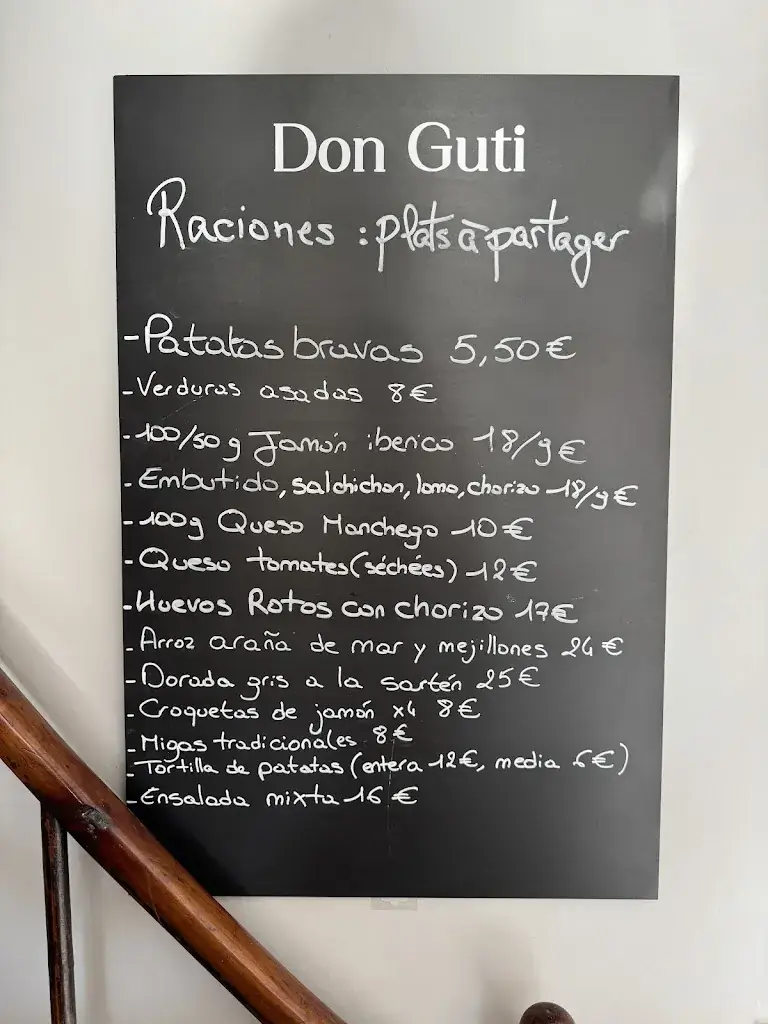 Don Guti
Raciones : plats à partager
-Patatas bravas 5,50€
-Verduras asadas 8€
-100/50 g Jamón iberico 18/9€
-Embutido, salchichon, lomo, chorizo 18/9€
-100g Queso Manchego 10€
-Queso tomates (séchées) 12€
-Huevos Rotos con chorizo 17€
-Arroz araña de mar y mejillones 24€
-Dorada gris a la sartén 25€
-Croquetas de jamón x4 8€
-Migas tradicionales 8€
-Tortilla de patatas (entera 12€, media 6€)
-Ensalada mixta 16€